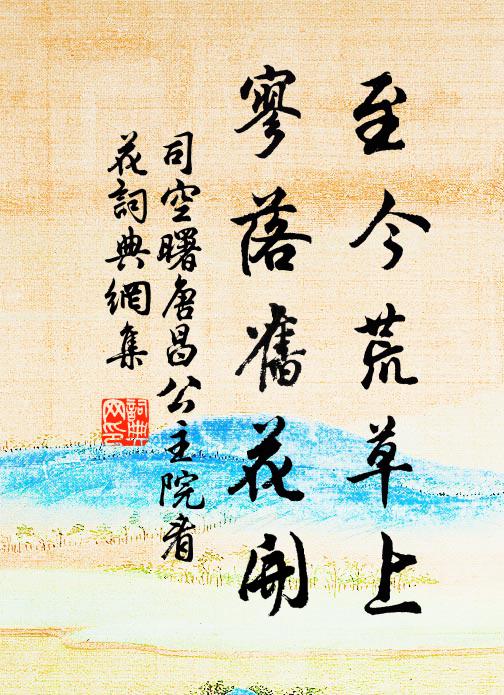 至今荒草上
寥落舊花開
司空曙唐昌公主院看
花詞典網集
詞典
网印